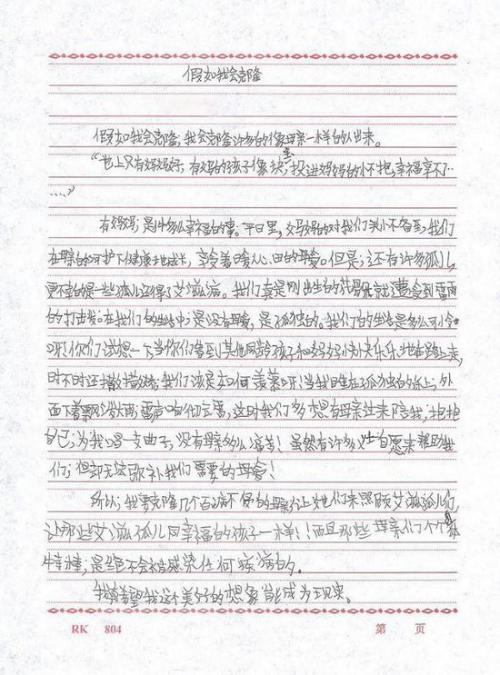 假如我会克隆
假如我会克隆，我会克隆许多的像母亲一样的人出来。
“世上只有妈妈好，有妈的孩子像块宝，投进妈妈的怀抱，幸福享不了
……”
有妈妈，是多么幸福的事。平日里，妈妈的对我们关心不备至，我们
在母亲的呵护下健康地成长，享受着暖人心田的母爱。但是，还有许多孤儿，
更不幸的是一些孤儿还得了艾滋病。我们真是刚出生的花骨朵就遭受到雷雨
的打击。在我们的生活中，是没有母爱，是孤独的。我们的生活是多么可怜
呀！你们试想一下当你们看到其他同龄孩子和妈妈快快乐乐地在路上走，
时不时还撒撒娇，我们该是如何羡慕呀！当我自坐在孤独的纸上，外
面下着瓢泼大雨，雷声响彻云霄，这时我们多想有母亲过来陪我，抱抱
自己，为我唱一支曲子，没有母亲多么痛苦！虽然有许多人士自愿来帮助我
们，但却无法弥补我们需要的母爱！
所以，我要克隆几个百病不侵的母亲，让她们来照顾艾滋孤儿们，
让那些艾滋孤儿同幸福的孩子一样！而且那些母亲们个个身体
棒棒，是绝不会被感染任何疾病的。
我希望我这个美好的想象能成为现实。
RK 804
第 页